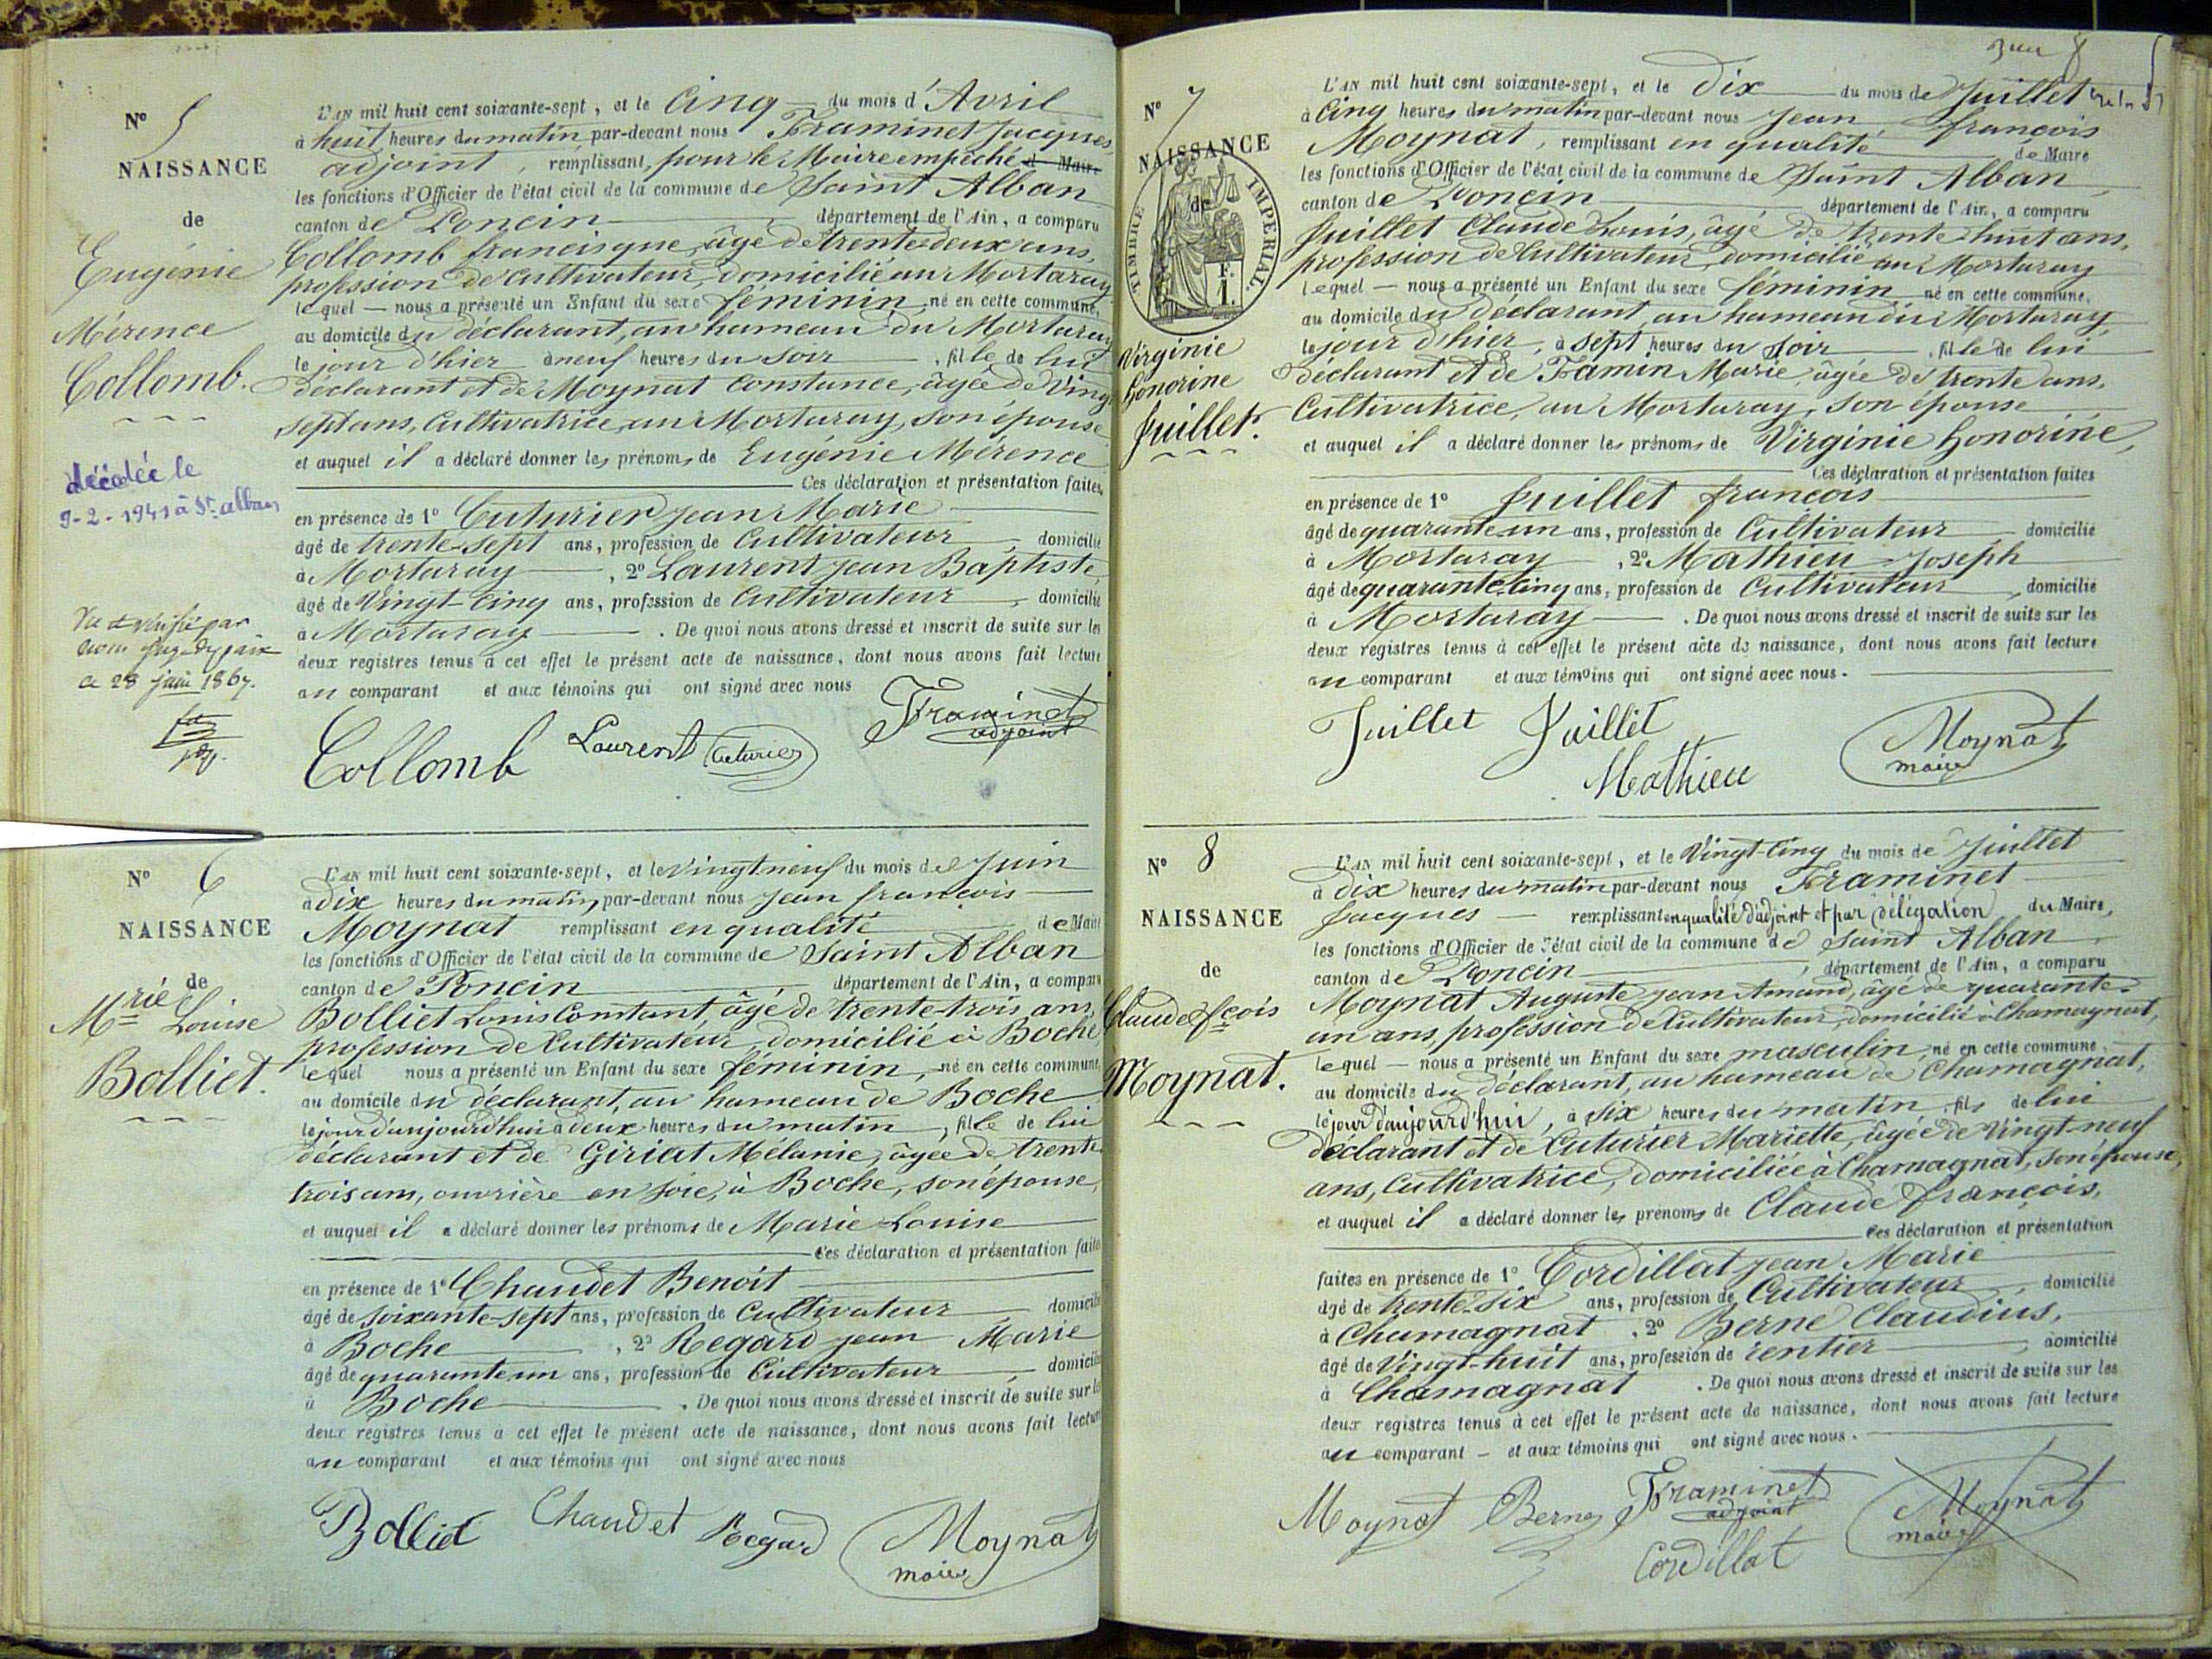 N° 5
NAISSANCE
de
Eugénie
Mérence
Collomb.
décédée le
9-2-1941 à St. alban
Vu et vérifié par
nous juge de paix
ce 28 juin 1867.
L'AN mil huit cent soixante-sept, et le Cinq du mois d'Avril
à huit heures du matin par-devant nous Framinet Jacques,
adjoint, remplissant, pour le Maire empêché d Maire
les fonctions d'Officier de l'état civil de la commune de Saint Alban
canton de Poncin, département de l'Ain, a comparu
Collomb francisque, âgé de trente-deux ans,
profession de Cultivateur, domicilié au Mortaray
lequel — nous a présenté un Enfant du sexe féminin, né en cette commune,
au domicile du déclarant, au hameau du Mortaray
le jour d'hier à neuf heures du Soir, fille de lui
déclarant et de Moynat Constance, âgée de Vingt
sept ans, Cultivatrice, au Mortaray, son épouse
et auquel il a déclaré donner les prénoms de Eugénie Mérence
Ces déclaration et présentation faites
en présence de 1° Cuturier Jean Marie
âgé de trente-sept ans, profession de Cultivateur, domicilié
à Mortaray, 2° Laurent Jean Baptiste
âgé de Vingt-Cinq ans, profession de Cultivateur, domicilié
à Mortaray. De quoi nous avons dressé et inscrit de suite sur les
deux registres tenus à cet effet le présent acte de naissance, dont nous avons fait lecture
au comparant et aux témoins qui ont signé avec nous
Collomb Laurent Cuturier Framinet
adjoint
N° 6
NAISSANCE
de
Mrie Louise
Bolliet.
L'AN mil huit cent soixante-sept, et le Vingt neuf du mois de Juin
à Dix heures du matin, par-devant nous Jean françois
Moynat remplissant en qualité de Maire
les fonctions d'Officier de l'état civil de la commune de Saint Alban
canton de Poncin département de l'Ain, a comparu
Bolliet Louis Constant, âgé de trente-trois ans,
profession de Cultivateur, domicilié à Boche,
lequel nous a présenté un Enfant du sexe féminin, né en cette commune
au domicile du déclarant, au hameau de Boche
le jour d'aujourd'hui à deux heures du matin, fille de lui
déclarant et de Giriat Mélanie, âgée de trente
trois ans, ouvrière en soie, à Boche, son épouse,
et auquel il a déclaré donner les prénoms de Marie Louise
Ces déclaration et présentation faites
en présence de 1° Chaudet Benoit
âgé de soixante-sept ans, profession de Cultivateur domicilié
à Boche, 2° Regard Jean Marie
âgé de quarante un ans, profession de Cultivateur, domicilié
à Boche. De quoi nous avons dressé et inscrit de suite sur les
deux registres tenus à cet effet le présent acte de naissance, dont nous avons fait lecture
au comparant et aux témoins qui ont signé avec nous
Bolliet Chaudet Regard Moynat
maire
N° 7
NAISSANCE
de
TIMBRE IMPERIAL
F.
1.
Virginie
honorine
Juillet.
L'AN mil huit cent soixante-sept, et le Dix du mois de Juillet
à Cinq heures du matin par-devant nous Jean françois
Moynat, remplissant en qualité de Maire
les fonctions d'Officier de l'état civil de la commune de Saint Alban,
canton de Poncin département de l'Ain, a comparu
Juillet Claude Louis, âgé de trente huit ans,
profession de Cultivateur, domicilié au Mortaray
lequel — nous a présenté un Enfant du sexe féminin né en cette commune,
au domicile du déclarant, au hameau du Mortaray,
le jour d'hier, à sept heures du Soir, fille de lui
déclarant et de Famin Marie, âgée de trente ans,
Cultivatrice, au Mortaray, son épouse
et auquel il a déclaré donner les prénoms de Virginie honorine,
Ces déclaration et présentation faites
en présence de 1° Juillet françois
âgé de quarante un ans, profession de Cultivateur, domicilié
à Mortaray, 2° Mathieu Joseph
âgé de quarante-Cinq ans, profession de Cultivateur, domicilié
à Mortaray. De quoi nous avons dressé et inscrit de suite sur les
deux registres tenus à cet effet le présent acte de naissance, dont nous avons fait lecture
au comparant et aux témoins qui ont signé avec nous.
Juillet Juillet Moynat
Mathieu maire
N° 8
NAISSANCE
de
Claude fçois
Moynat.
L'AN mil huit cent soixante-sept, et le Vingt-Cinq du mois de Juillet
à dix heures du matin par-devant nous Framinet
Jacques — remplissant en qualité d'adjoint et par délégation du Maire,
les fonctions d'Officier de l'état civil de la commune de Saint Alban
canton de Poncin, département de l'Ain, a comparu
Moynat Auguste Jean Amand, âgé de quarante-
un ans, profession de Cultivateur, domicilié à Chamagnat,
lequel — nous a présenté un Enfant du sexe masculin, né en cette commune
au domicile du déclarant, au hameau de Chamagnat,
le jour d'aujourd'hui, à six heures du matin, fils de lui
déclarant et de Cuturier Mariette, âgée de Vingt-neuf
ans, Cultivatrice, domiciliée à Chamagnat, son épouse,
et auquel il a déclaré donner les prénoms de Claude françois,
Ces déclaration et présentation
faites en présence de 1° Cordillat Jean Marie
âgé de trente-six ans, profession de Cultivateur, domicilié
à Chamagnat, 2° Berne Claudius,
âgé de Vingt-huit ans, profession de rentier, domicilié
à Chamagnat. De quoi nous avons dressé et inscrit de suite sur les
deux registres tenus à cet effet le présent acte de naissance, dont nous avons fait lecture
au comparant — et aux témoins qui ont signé avec nous.
Moynat Berne Framinet Moynat
adjoint maire
Cordillat